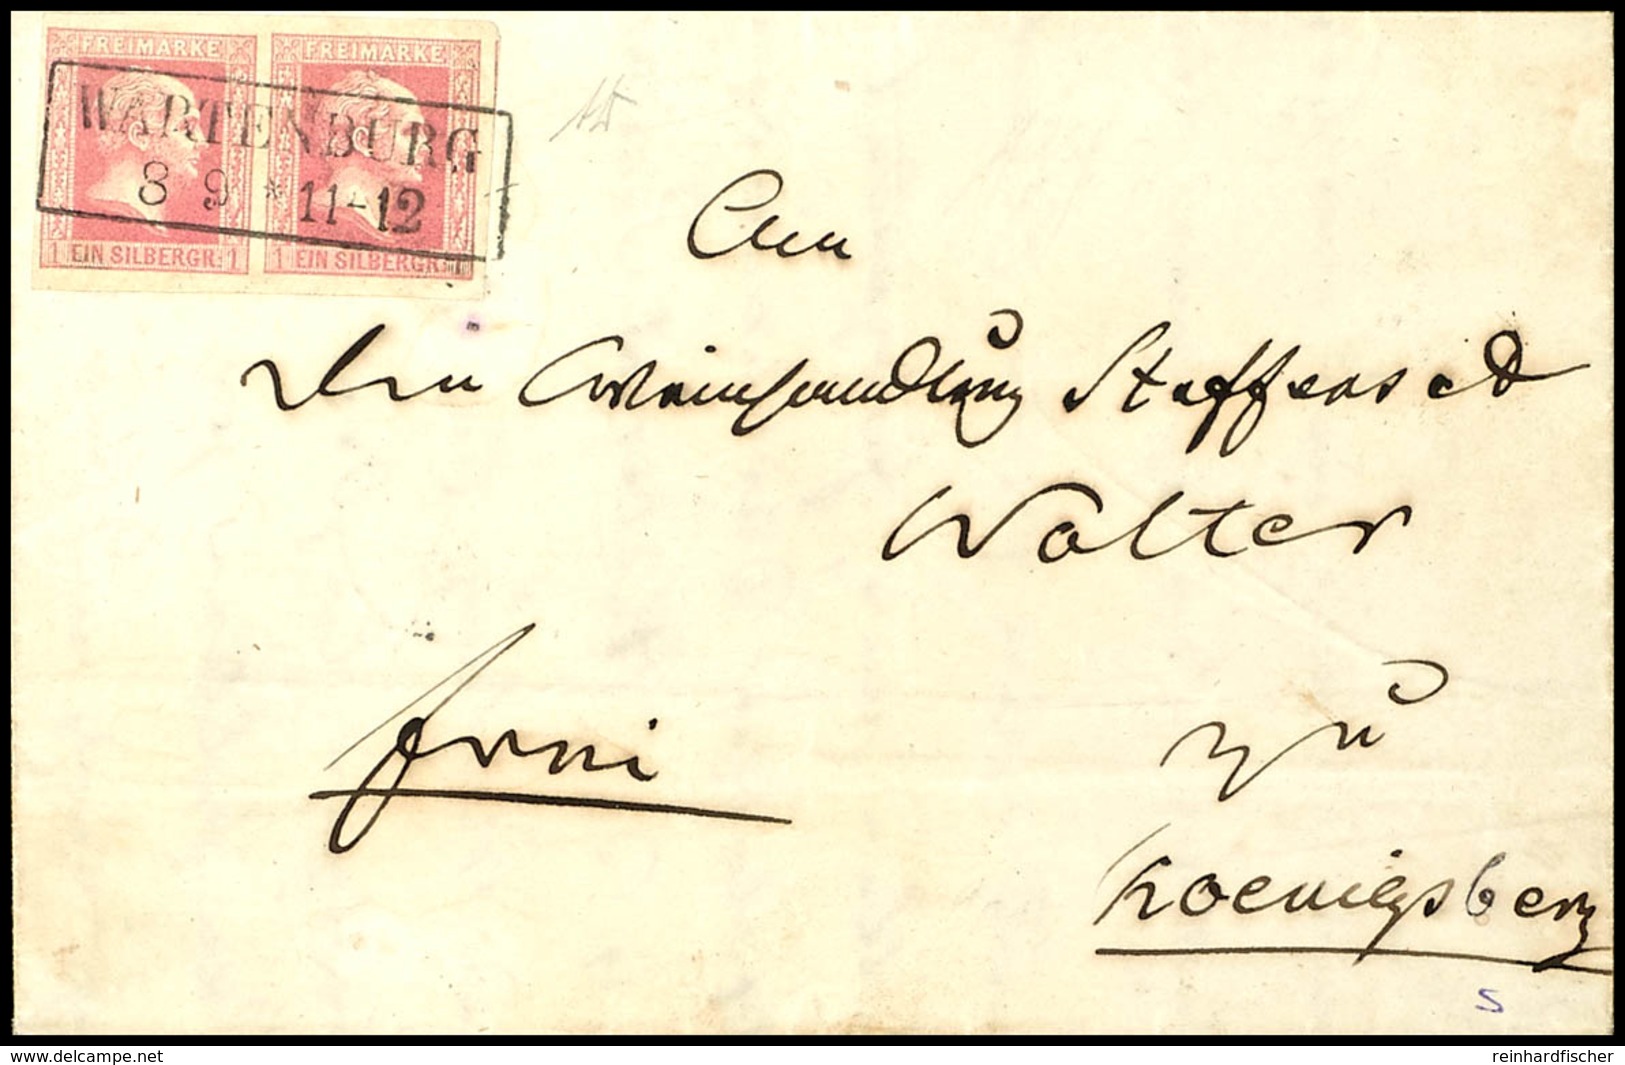 FREIMARKE FREIMARKE
WARTENBURG
8 9 * 11-12
1 EIN SILBERGR. 1 1 EIN SILBERGR.
An
die Weinhandlung Steffens et
Wolter
frei
zu
Koenigsberg
S
www.delcampe.net
reinhardfischer